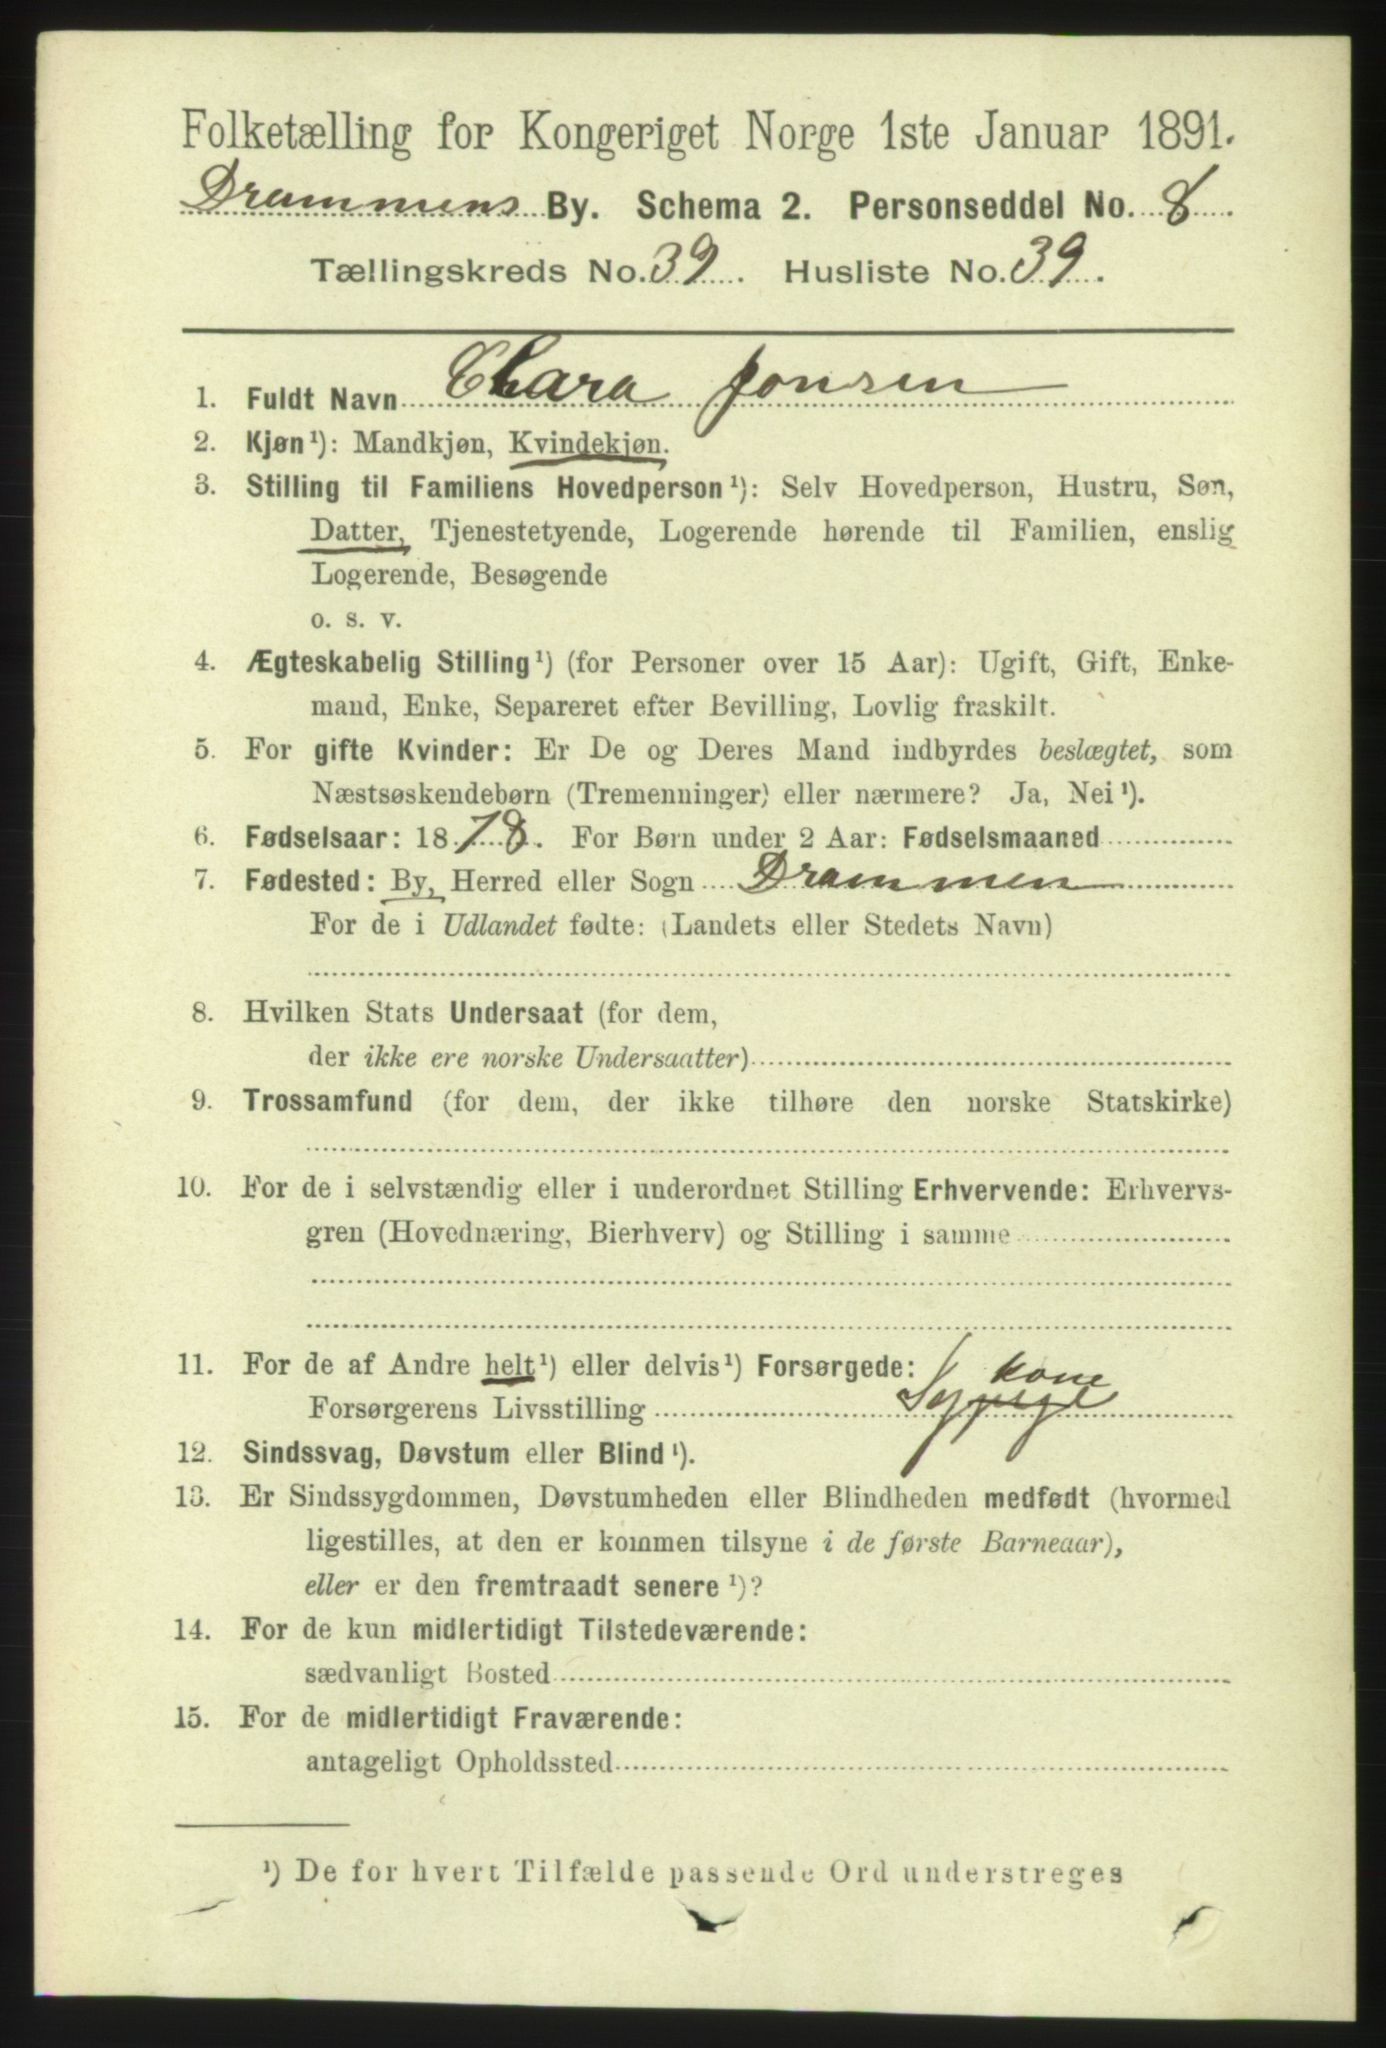 Folketælling for Kongeriget Norge 1ste Januar 1891.
Drammens By. Schema 2. Personseddel No. 8
Tællingskreds No. 39. Husliste No. 39.
1. Fuldt Navn Clara Jonsen
2. Kjøn¹): Mandkjøn, Kvindekjøn.
3. Stilling til Familiens Hovedperson¹): Selv Hovedperson, Hustru, Søn,
Datter, Tjenestetyende, Logerende hørende til Familien, enslig
Logerende, Besøgende
o. s. v.
4. Ægteskabelig Stilling¹) (for Personer over 15 Aar): Ugift, Gift, Enke-
mand, Enke, Separeret efter Bevilling, Lovlig fraskilt.
5. For gifte Kvinder: Er De og Deres Mand indbyrdes beslægtet, som
Næstsøskendebørn (Tremenninger) eller nærmere? Ja, Nei¹).
6. Fødselsaar: 1878. For Børn under 2 Aar: Fødselsmaaned
7. Fødested: By, Herred eller Sogn Drammen
For de i Udlandet fødte: (Landets eller Stedets Navn)
8. Hvilken Stats Undersaat (for dem,
der ikke ere norske Undersaatter)
9. Trossamfund (for dem, der ikke tilhøre den norske Statskirke)
10. For de i selvstændig eller i underordnet Stilling Erhvervende: Erhvervs-
gren (Hovednæring, Bierhverv) og Stilling i samme
11. For de af Andre helt¹) eller delvis¹) Forsørgede:
kone
Forsørgerens Livsstilling Sypige
12. Sindssvag, Døvstum eller Blind¹).
13. Er Sindssygdommen, Døvstumheden eller Blindheden medfødt (hvormed
ligestilles, at den er kommen tilsyne i de første Barneaar),
eller er den fremtraadt senere¹)?
14. For de kun midlertidigt Tilstedeværende:
sædvanligt Bosted
15. For de midlertidigt Fraværende:
antageligt Opholdssted
¹) De for hvert Tilfælde passende Ord understreges